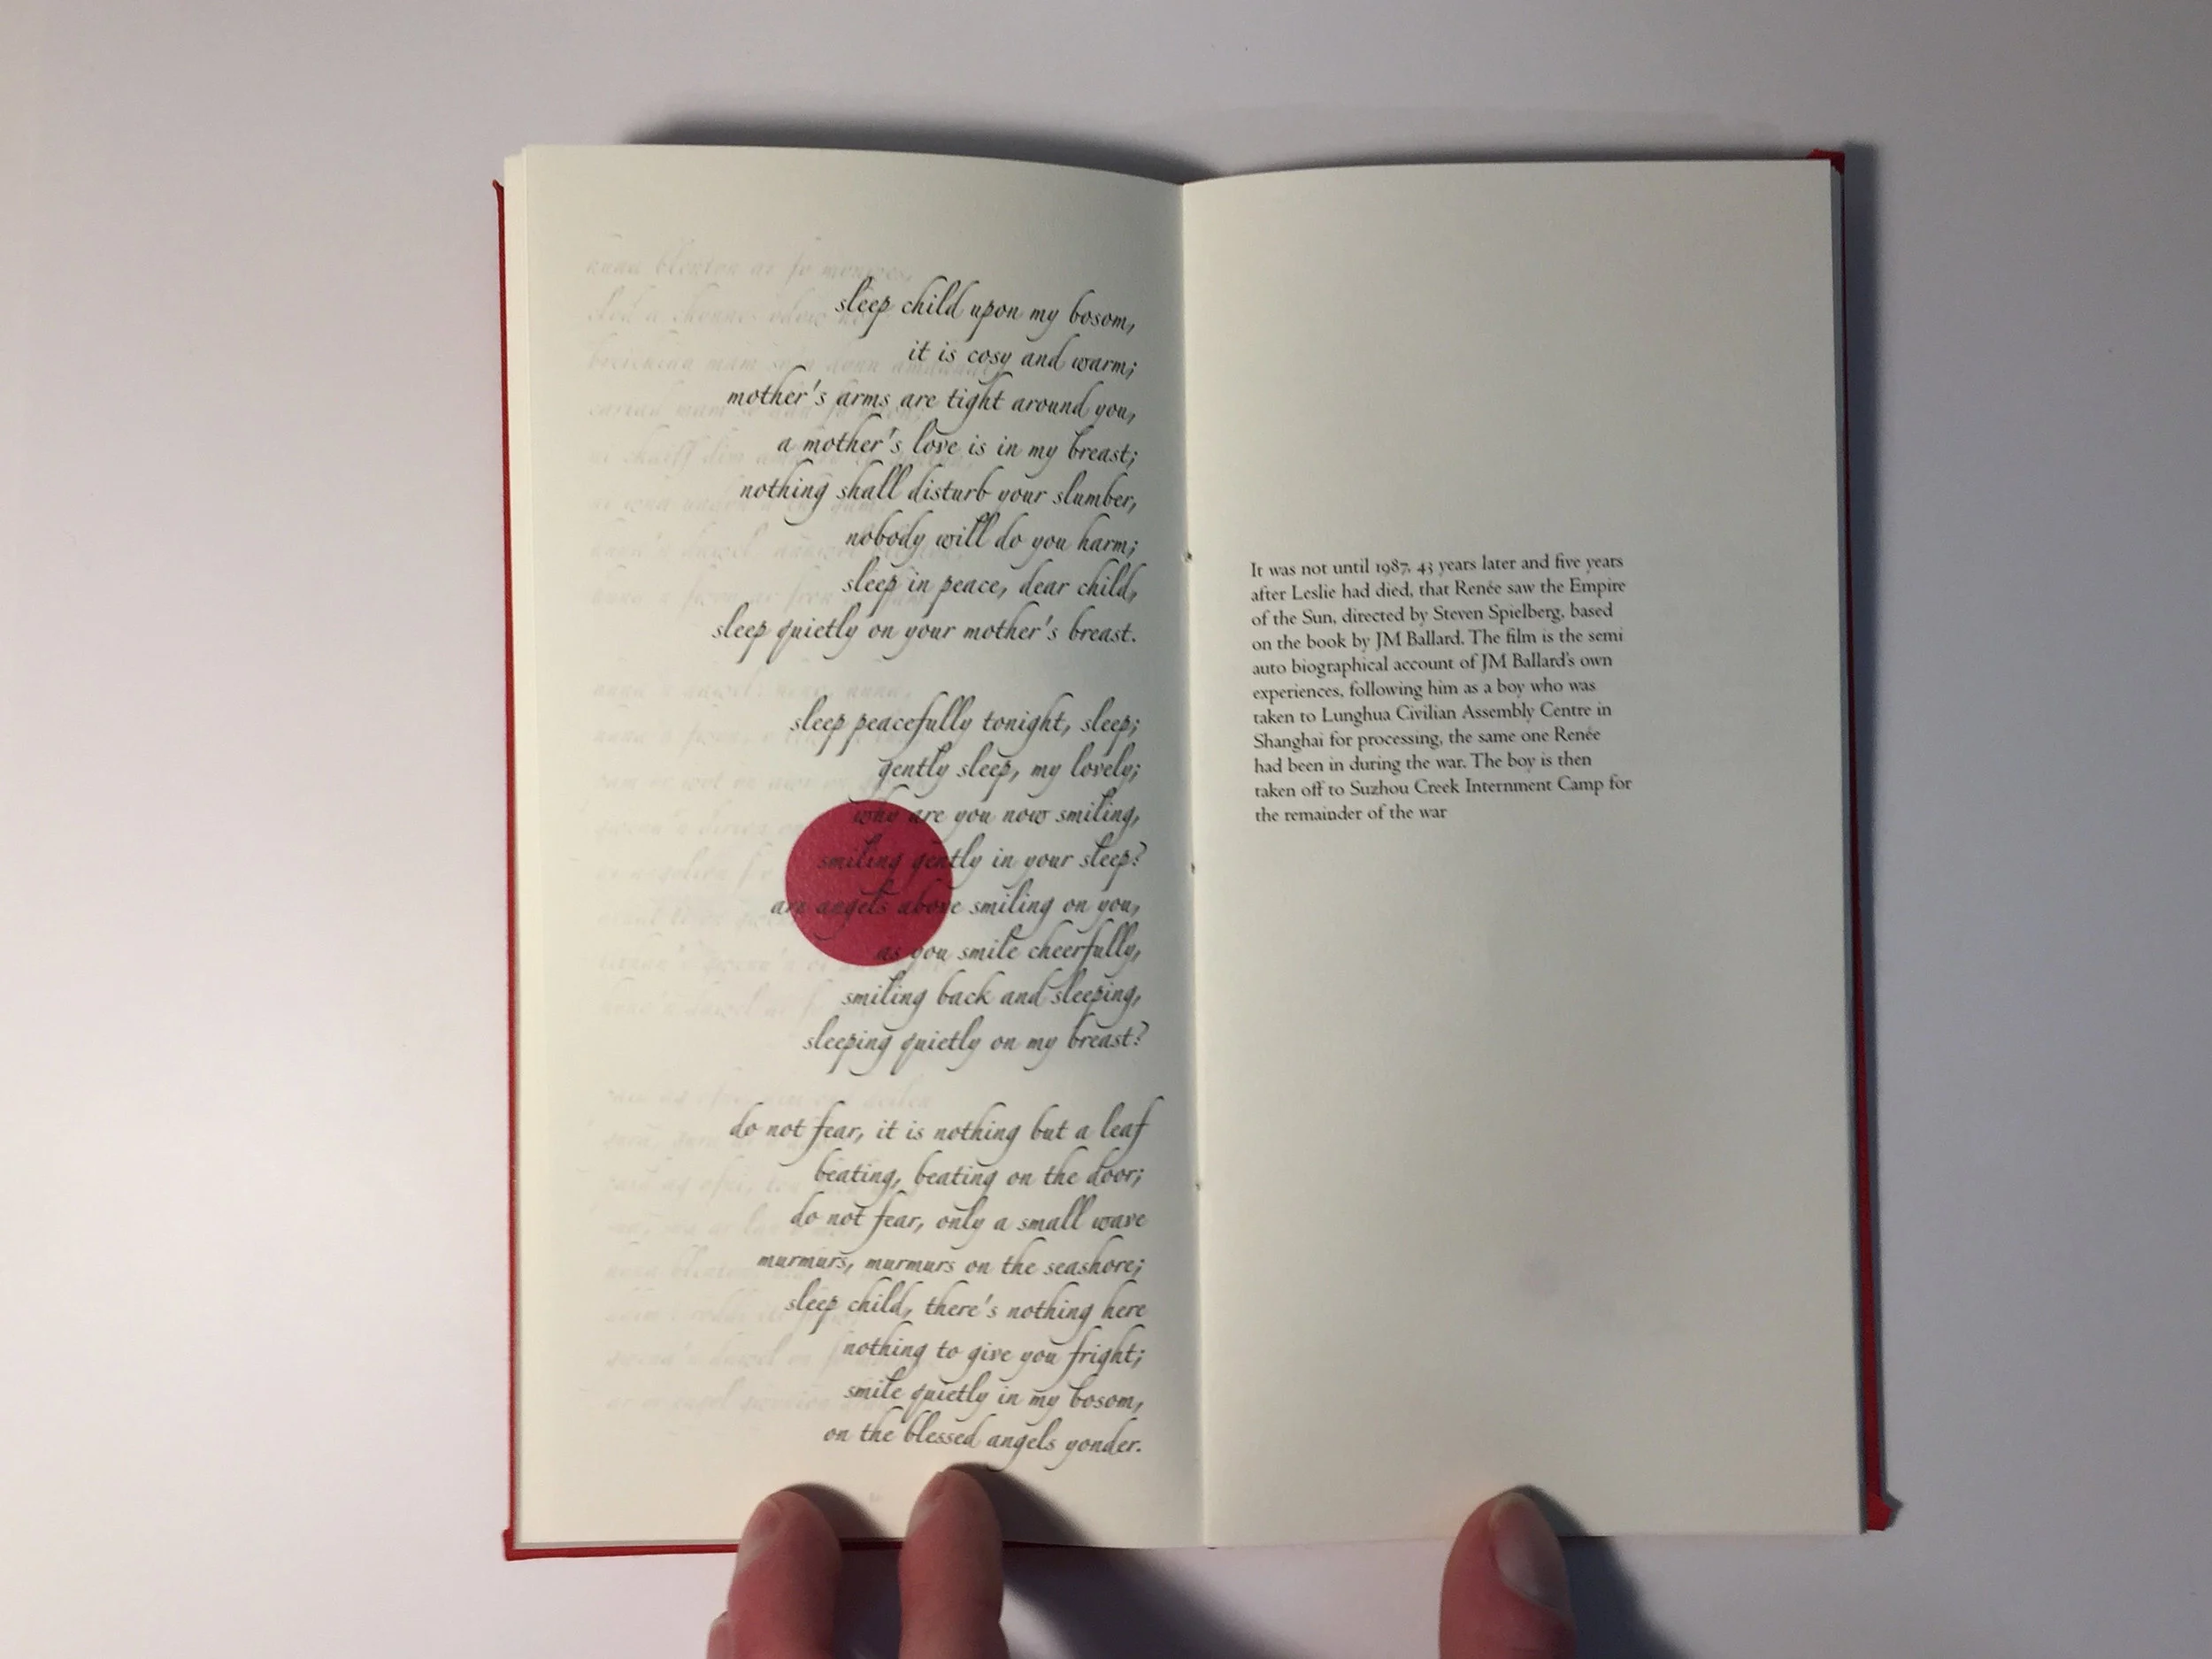 sleep child upon my bosom,
it is cosy and warm;
mother's arms are tight around you,
a mother's love is in my breast;
nothing shall disturb your slumber,
nobody will do you harm;
sleep in peace, dear child,
sleep quietly on your mother's breast.
sleep peacefully tonight, sleep;
gently sleep, my lovely;
why are you now smiling,
smiling gently in your sleep?
are angels above smiling on you,
as you smile cheerfully,
smiling back and sleeping,
sleeping quietly on my breast?
do not fear, it is nothing but a leaf
beating, beating on the door;
do not fear, only a small wave
murmurs, murmurs on the seashore;
sleep child, there's nothing here
nothing to give you fright;
smile quietly in my bosom,
on the blessed angels yonder.
It was not until 1987, 43 years later and five years
after Leslie had died, that Renée saw the Empire
of the Sun, directed by Steven Spielberg, based
on the book by JM Ballard. The film is the semi
auto biographical account of JM Ballard's own
experiences, following him as a boy who was
taken to Lunghua Civilian Assembly Centre in
Shanghai for processing, the same one Renée
had been in during the war. The boy is then
taken off to Suzhou Creek Internment Camp for
the remainder of the war